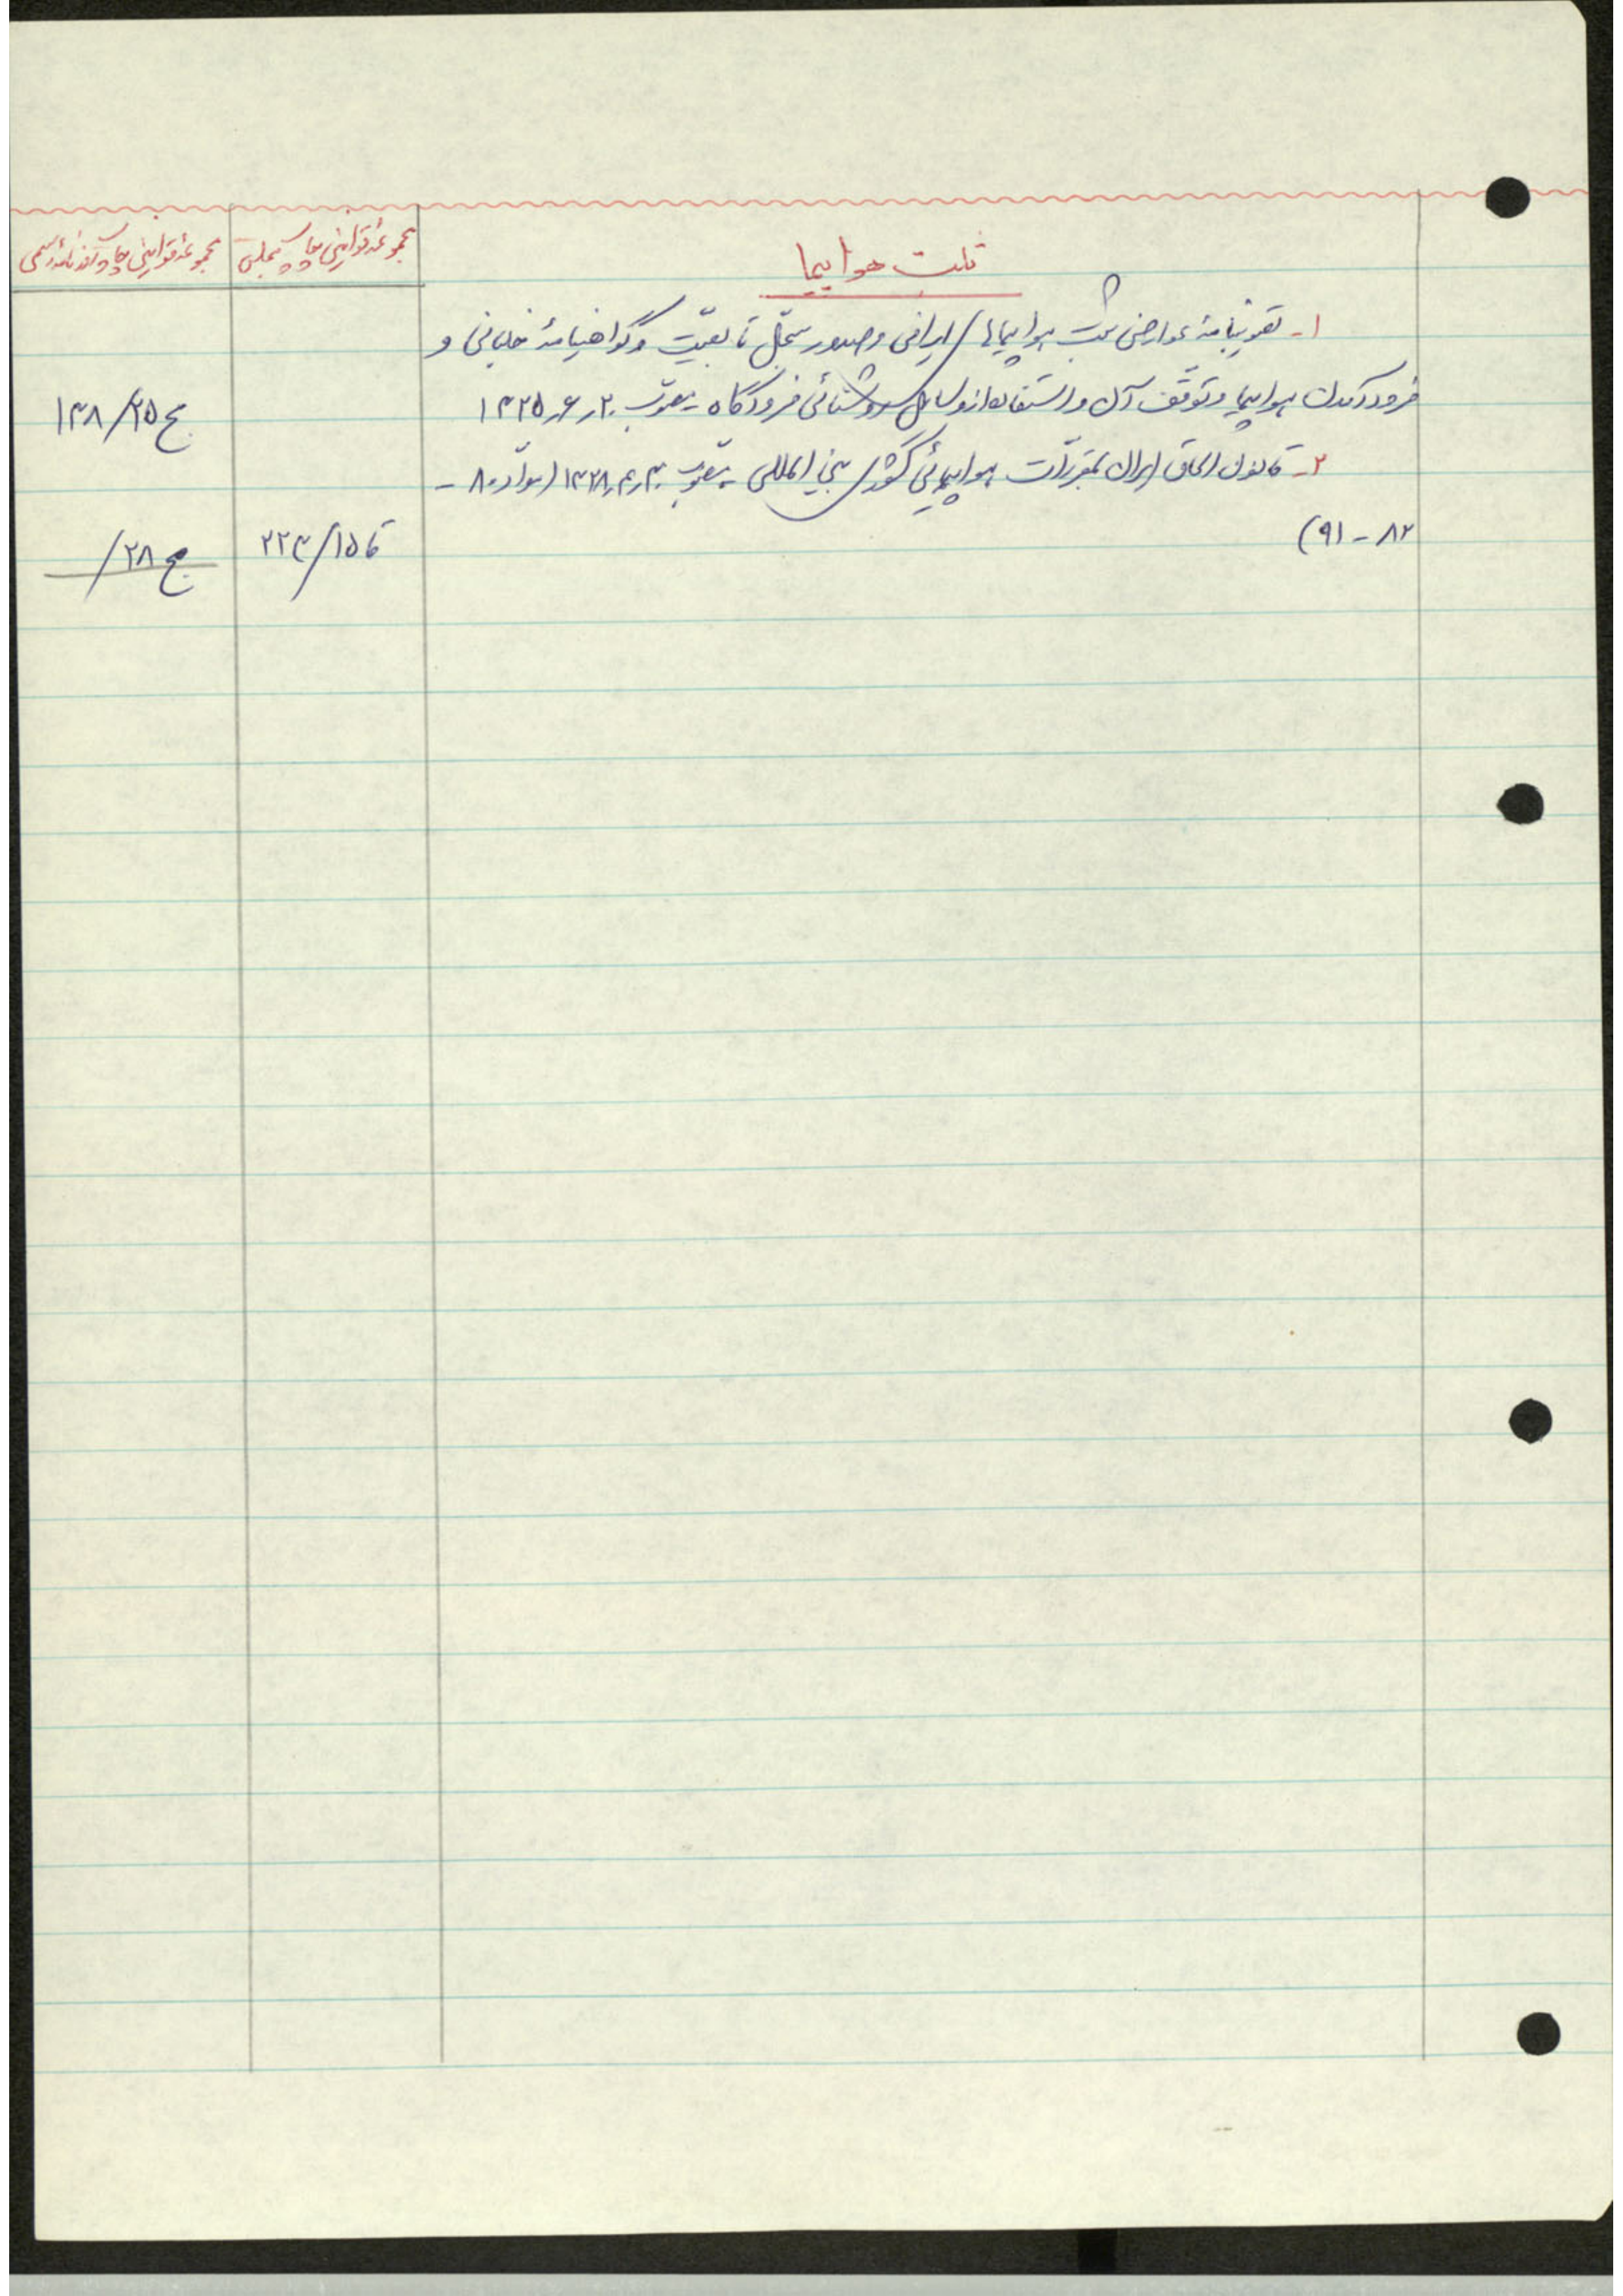 ثبت هواپیما
مجموعه قوانین چاپ مجلس
مجموعه قوانین چاپ روزنامه رسمی
۱- تصویبنامهٔ عوارض ثبت هواپیماهای ایرانی و صدور سجل تابعیت و گواهینامهٔ خلبانی و
فرود آمدن هواپیما و توقف آن و استفاده از وسایل روشنائی فرودگاه مصوب ۲۰ر۶ر۱۳۲۵
مج ۲۵/۱۳۸
۲- قانون الحاق ایران بمقررات هواپیمائی کشوری بین المللی مصوب ۳۰ر۴ر۱۳۲۸ (مواد ۸۰-
۸۲-۹۱)
قا ۱۵/۲۲۳
مج ۲۸/